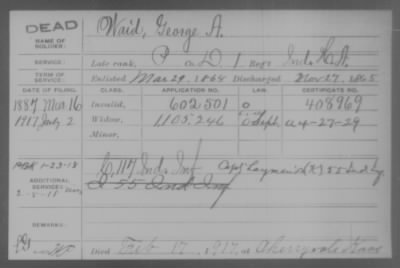 DEAD
NAME OF SOLDIER: Waid, George A.
SERVICE: Late rank, P Co D, 1 Regt Ind. H.A.
TERM OF SERVICE: Enlisted Mar 29, 1864 Discharged Nov 27, 1865
DATE OF FILING. CLASS. APPLICATION NO. LAW. CERTIFICATE NO.
1887 Mar 16 Invalid, 602501 408969
1917 July 2 Widow, 1105246 a 4-27-29
Minor,
1-23-18 C 117 Ind. Inf Capt Laymon's 55 Ind Inf
ADDITIONAL SERVICES: I 55 Ind Inf
2-5-18
REMARKS:
Died Feb 17, 1917, at Cherryvale Kans